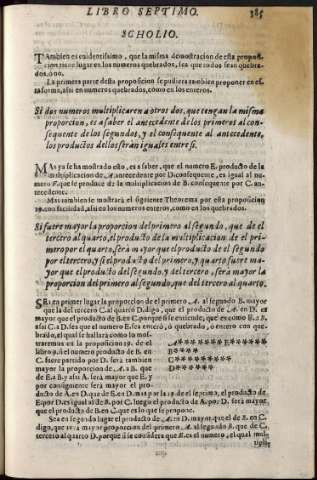 LIBRO SEPTIMO.
385
SCHOLIO.
TAmbien es euidentissimo, que la misma demostracion de esta proposi-
cion tiene lugar en los numeros quebrados, sea que todos sean quebra-
dos, o no.
La primera parte desta proposicion se pudiera tambien proponer en esta
forma, assi en numeros quebrados, como en los enteros.
Si dos numeros multiplicaren a otros dos, que tengan la misma
proporcion, es a saber el antecedente de los primeros al con-
sequente de los segundos, y el consequente al antecedente,
los productos dellos serán iguales entre si.
MAs ya se ha mostrado esto, es a saber, que el numero E. producto de la
multiplicacion de A. antecedente por D. consequente, es igual al nu-
mero F. que se produce de la multiplicacion de B. consequente por C. an-
tecedente.
Mas tambien se mostrará el siguiente Theorema por esta proposicion
19. con facilidad, assi en los numeros enteros, como en los quebrados.
Si fuere mayor la proporcion del primero al segundo, que de el
tercero al quarto, el producto de la multiplicacion de el pri-
mero por el quarto, será mayor que el producto de el segundo
por el tercero, y si el producto del primero, y quarto fuere ma-
yor que el producto del segundo, y del tercero, será mayor la
proporcion del primero al segundo, que del tercero al quarto.
SEa en primer lugar la proporcion de el primero A. al segundo B. mayor
que la del tercero C. al quarto D. digo, que el producto de A. en D. es
mayor que el producto de B. en C. porque si se entiende, que es como E. a B.
assi C. a D. sea que el numero E. sea entero, ó quebrado, o entero con que-
brado, el qual se hallará como lo mos-
traremos en la proposicion 19. de el
libro 9. si el numero producto de B. en
C. fuere partido por D. será tambien
mayor la proporcion de A. a B. que
de E. a B. y assi A. será mayor que E. y
por consiguiente será mayor el pro-
A******
B****
C********
D******
ducto de A. en D. que de E. en D. mas por la 19. de el septimo, el producto de
E. por D. es igual al de B. por C. luego el producto de A. por D. será mayor
que el producto de B. en C. que es lo que se propone.
Sea en segundo lugar el producto de A. en D. mayor, que el de B. en C.
digo, que será mayor la proporcion del primero A. al segundo B. que de C.
tercero al quarto D. porque si se considera que E. es el numero, el qual mul-
tipli-